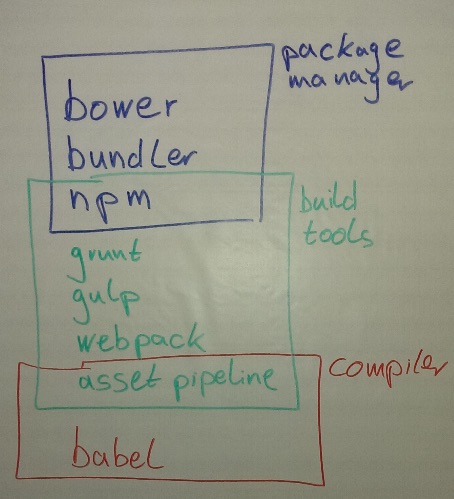 package
manager
bower
bundler
npm
build
tools
grunt
gulp
webpack
compiler
asset pipeline
babel